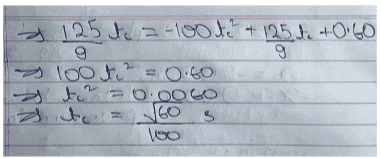 ⇒ 125/9 t꜀ = -100 t꜀² + 125/9 t꜀ + 0.60
⇒ 100 t꜀² = 0.60
⇒ t꜀² = 0.0060
⇒ t꜀ = √60/100 s